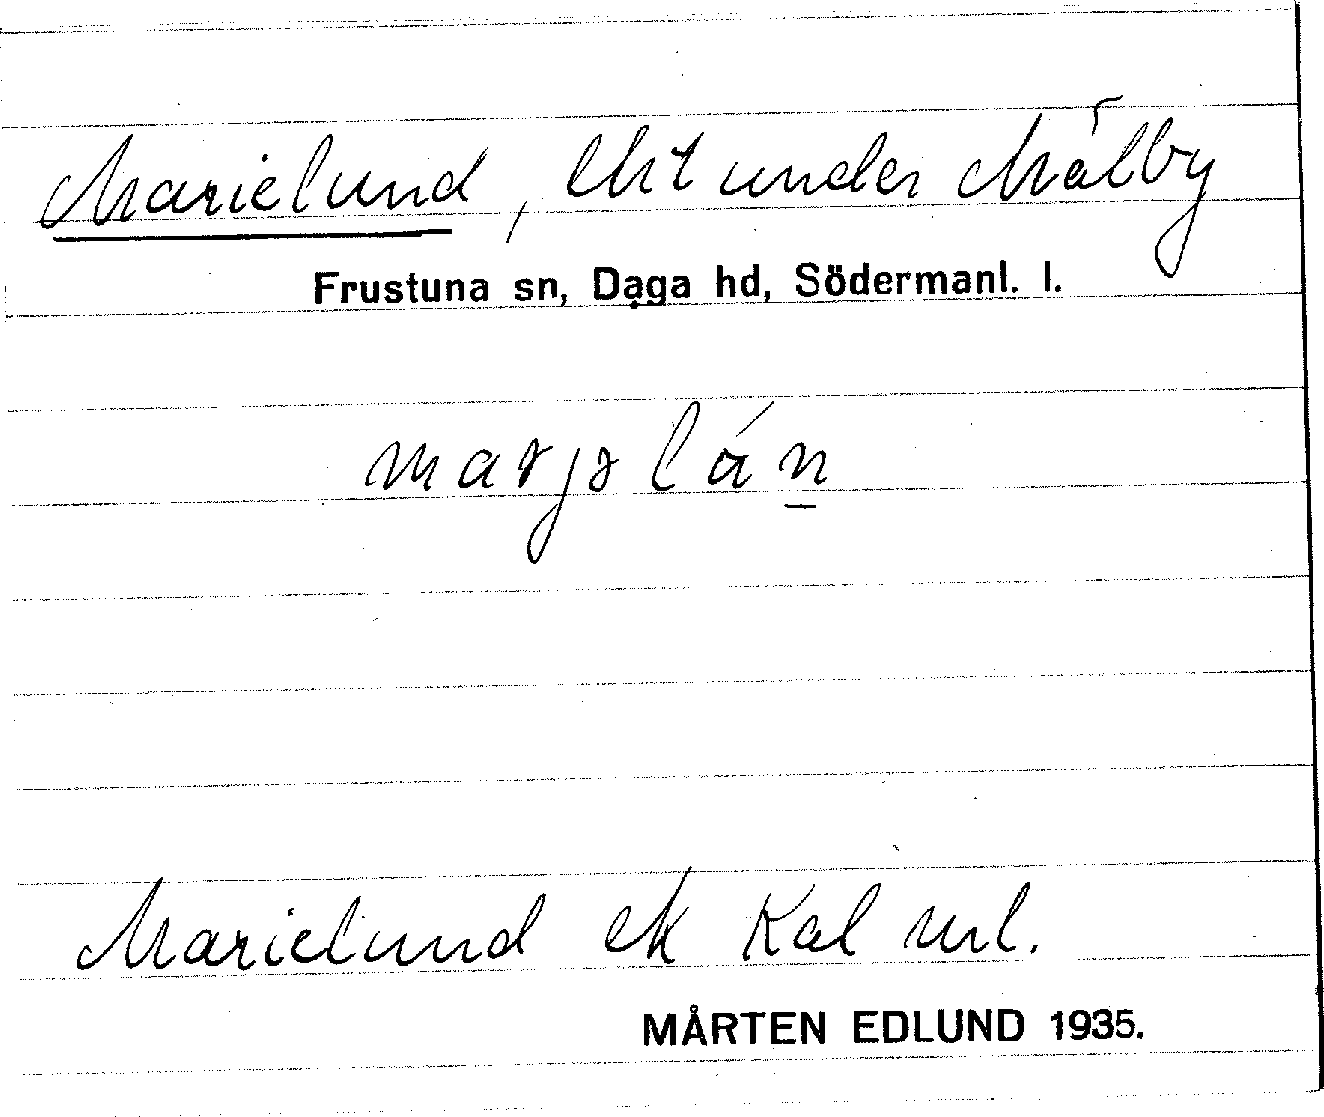 Marielund, lht under Målby
Frustuna sn, Daga hd, Södermanl. l.
Marielund ek Kal url.
MÅRTEN EDLUND 1935.